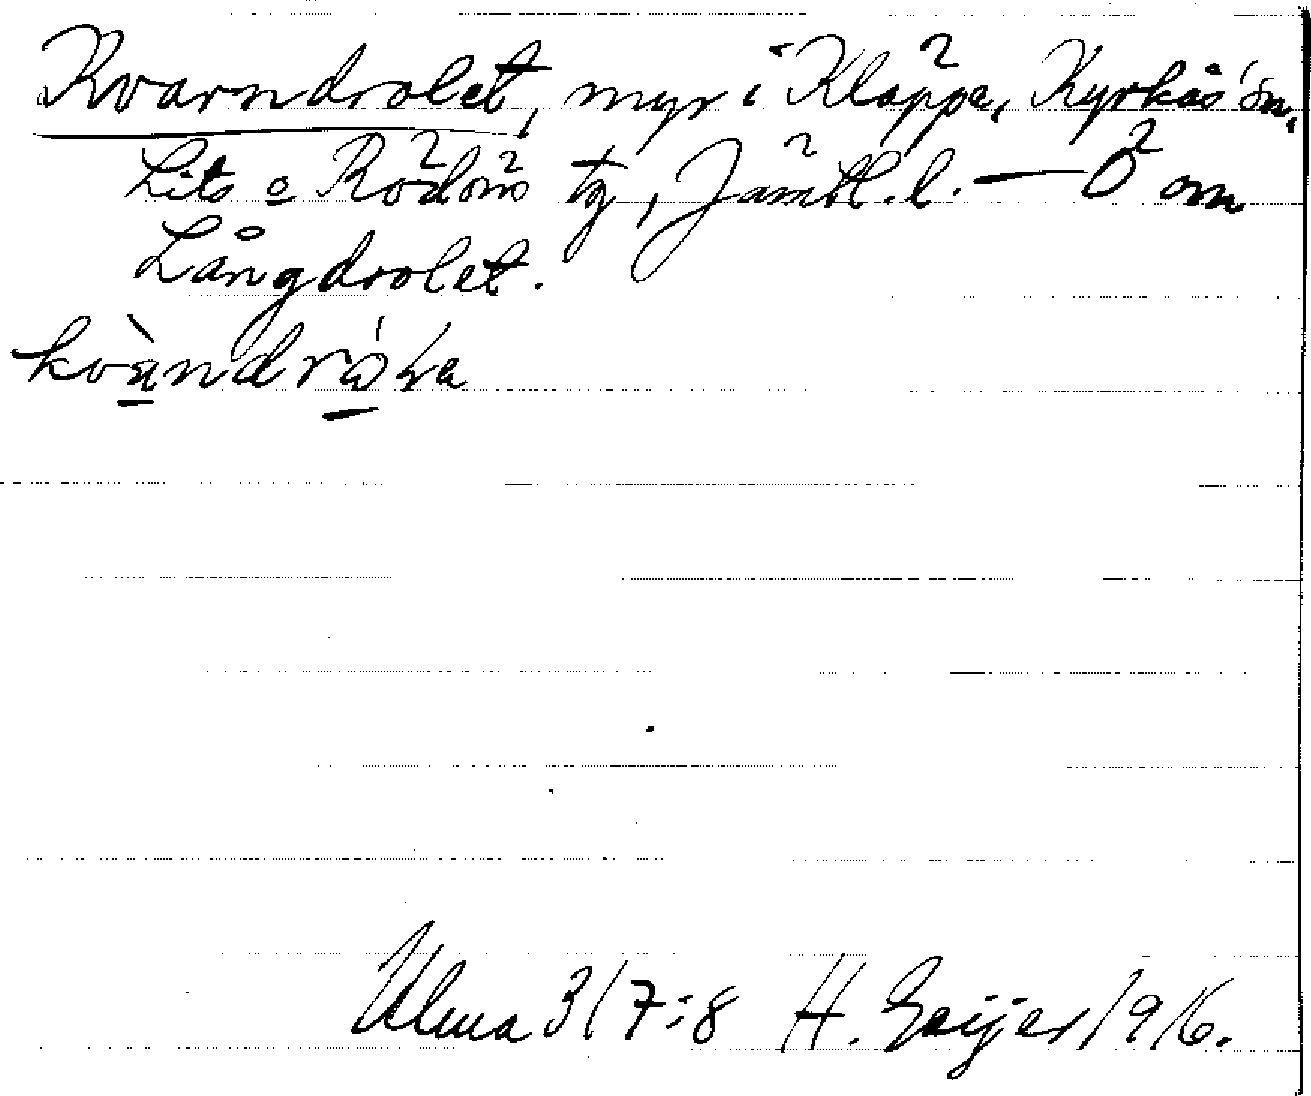 Kvarndrolet, myr i Kläppe, Kyrkås sn,
Lits o Rödöns tg, Jämtl. l. — Ö om
Långdrolet.
Ulma 3/7:8 H. Geijer 1916.